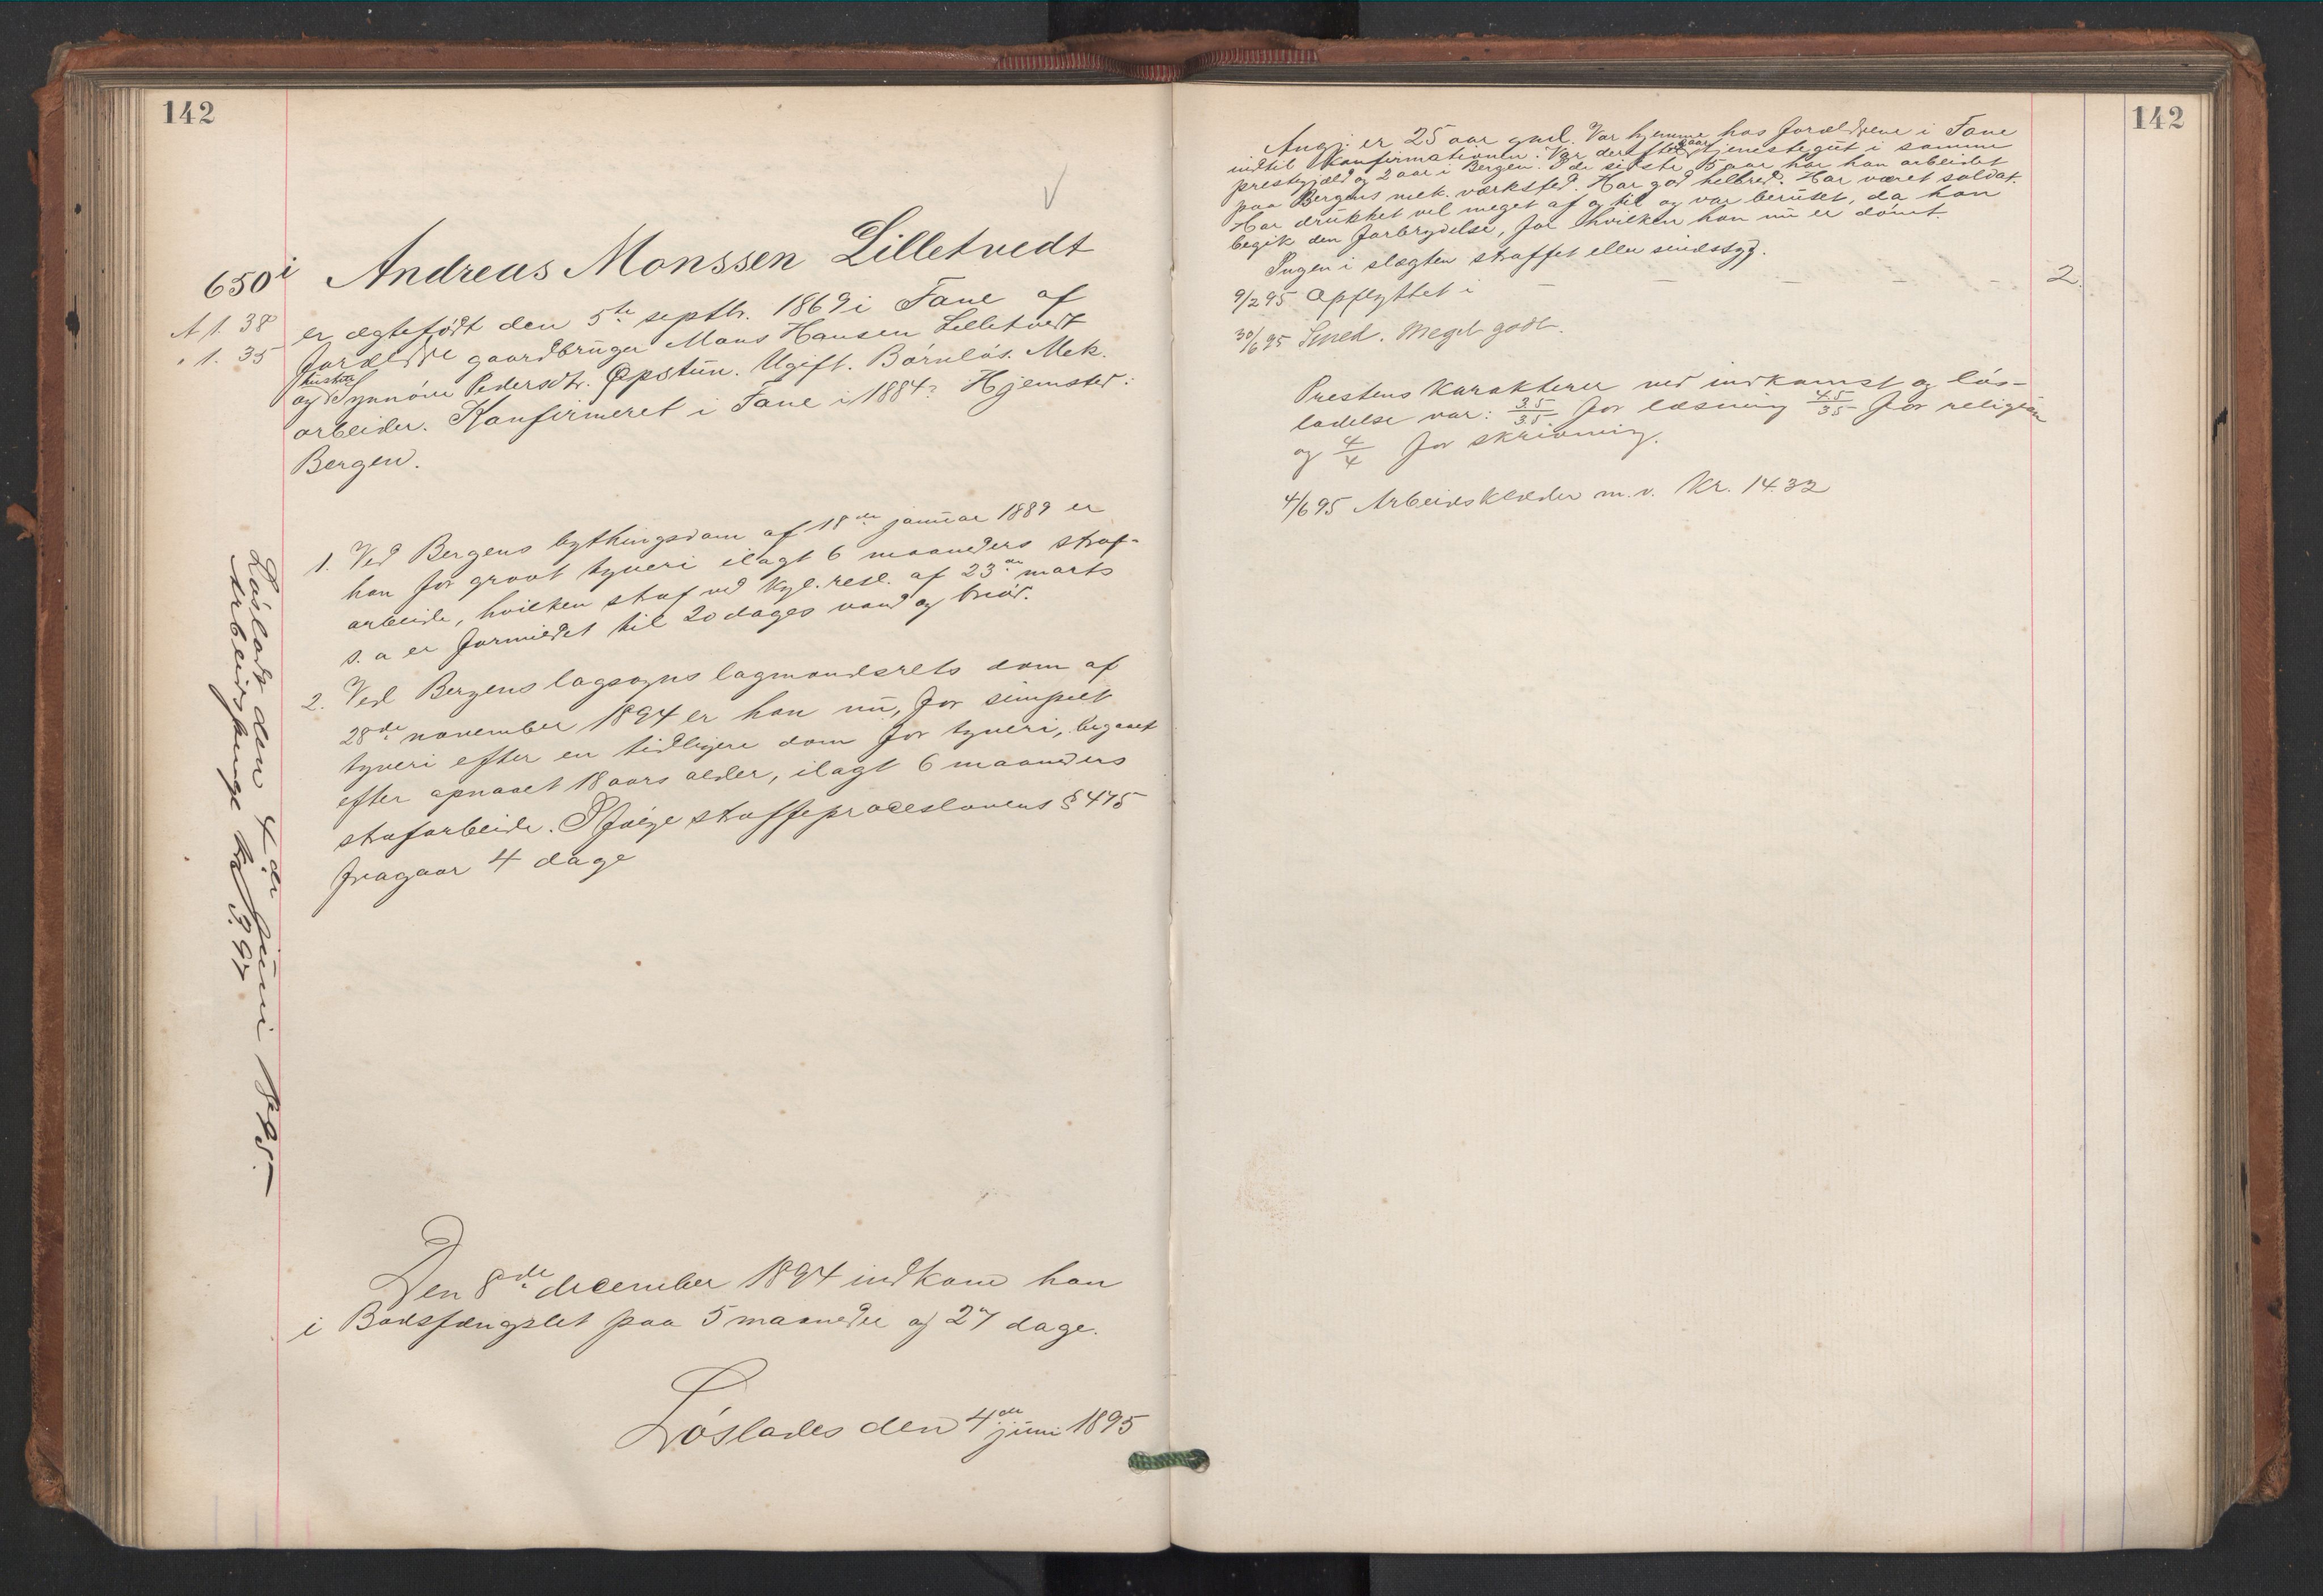 142
650i Andreas Monssen Lilletvedt
A f. 38 er ægtefødt den 5te septbr. 1869 i Fane af
" 1. 35 forældre gaardbruger Mons Hansen Lilletvedt
og hustru Synnøve Pedersdtr. Opstun. Ugift. Børnløs. Mek.
arbeider. Konfirmeret i Fane i 1884? Hjemsted:
Bergen.
1. Ved Bergens bythingsdom af 18de januar 1889 er
han for grovt tyveri ilagt 6 maaneders straf-
arbeide, hvilken straf ved kgl. resl. af 23de marts
s. a er formildet til 20 dages vand og brød.
2. Ved Bergens lagsogns lagmandsrets dom af
28de november 1894 er han nu, for simpelt
tyveri efter en tidligere dom for tyveri, begaaet
efter opnaaet 18 aars alder, ilagt 6 maaneders
strafarbeide. Ifølge straffeproceslovens § 475
fragaar 4 dage
Den 8de december 1894 indkom han
i Bodsfængslet paa 5 maaneder og 27 dage.
Løslades den 4de juni 1895
Løsladt den 4de juni 1895.
Arbeidspenge kr 3.97
142
Angj. er 25 aar gml. Var hjemme hos forældrene i Fane
indtil konfirmationen. Var derefter aar tjenestegut i samme
prestegjæld og 2 aar i Bergen. I de sidste 5 aar har han arbeidet
paa Bergens mek. værksted. Har god helbred. Har været soldat.
Har drukket vel meget af og til og var beruset, da han
begik den forbrydelse, for hvilken han nu er dømt.
Ingen i slægten straffet eller sindssyg.
9/2 95 Opflyttet i — — — — — 2.
30/6 95 Smed. Meget godt.
Prestens karakterer ved indkomst og løs-
ladelse var: 35/35 for læsning 45/35 for religion
og 4/4 for skrivning.
4/6 95 Arbeidsklæder m. v. Kr. 14.32